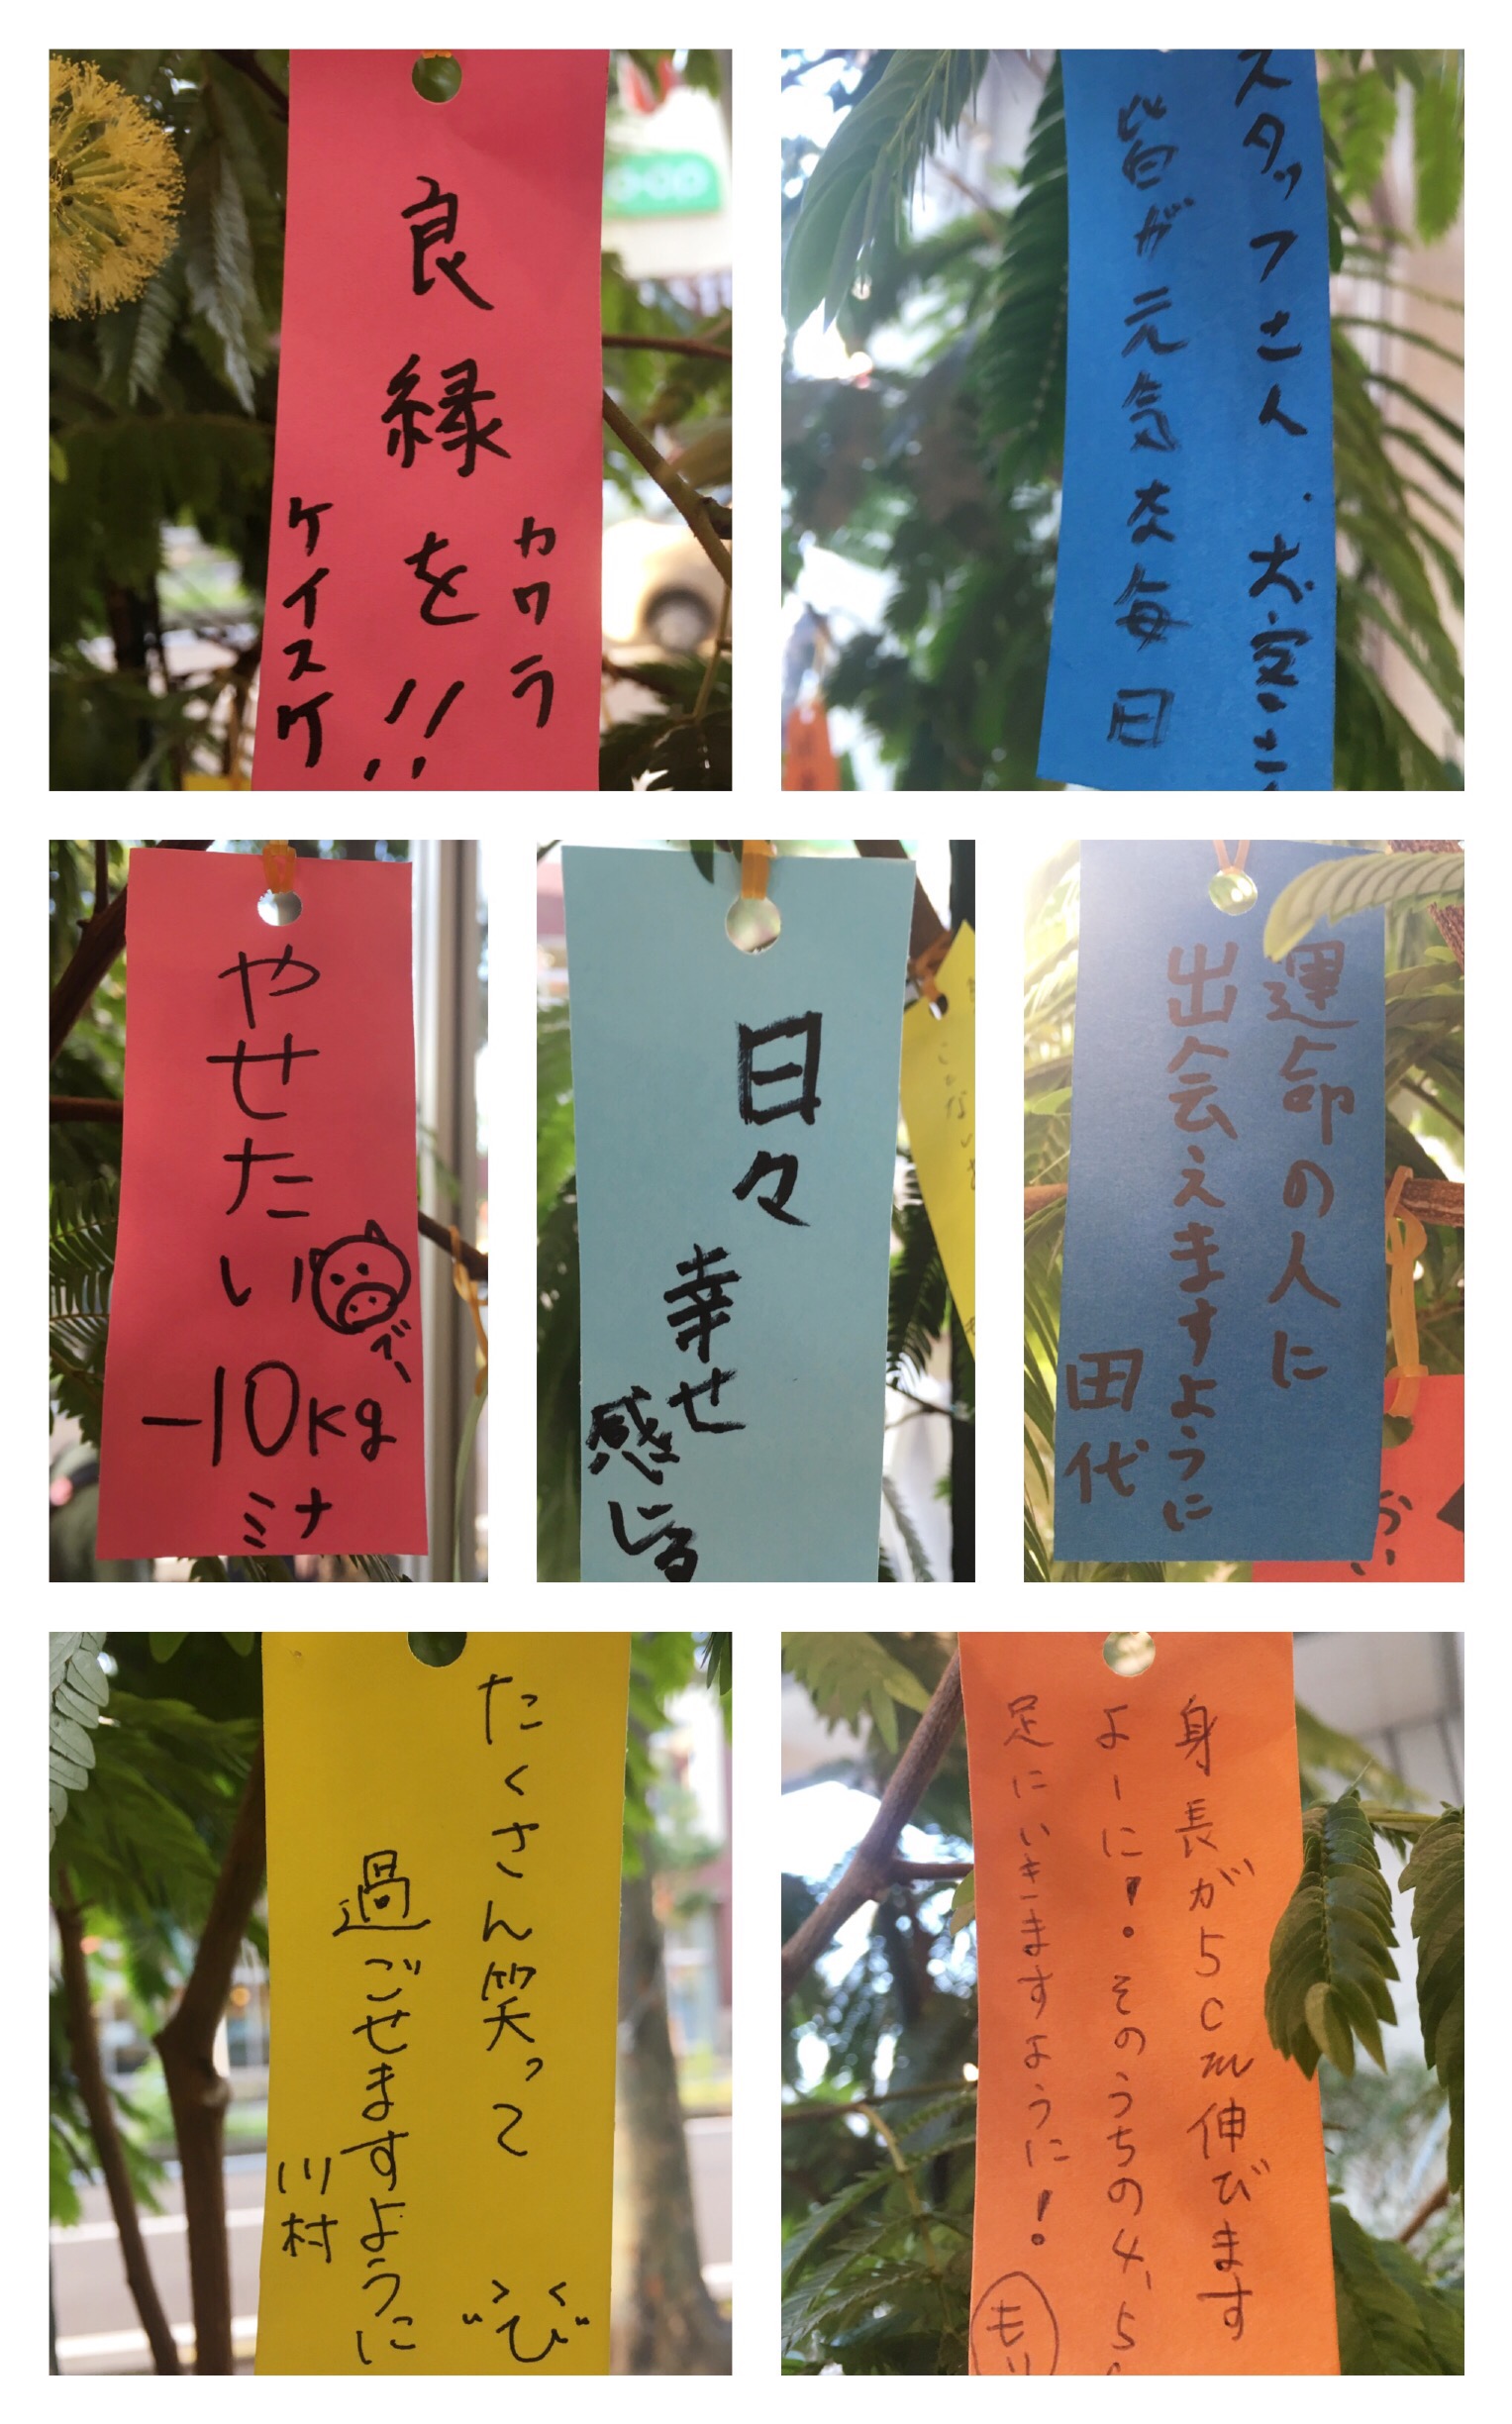 カワラ
良縁を!!
ケイスケ
スタッフさん、お客さ
皆が元気な毎日
やせたい
ベー
-10kg
ミナ
日々
幸せ
感じる
運命の人に
出会えますように
田代
たくさん笑って
過ごせますように
川村
身長が5cm伸びます
よーに!そのうちの4、5
足にいきますように!
もり